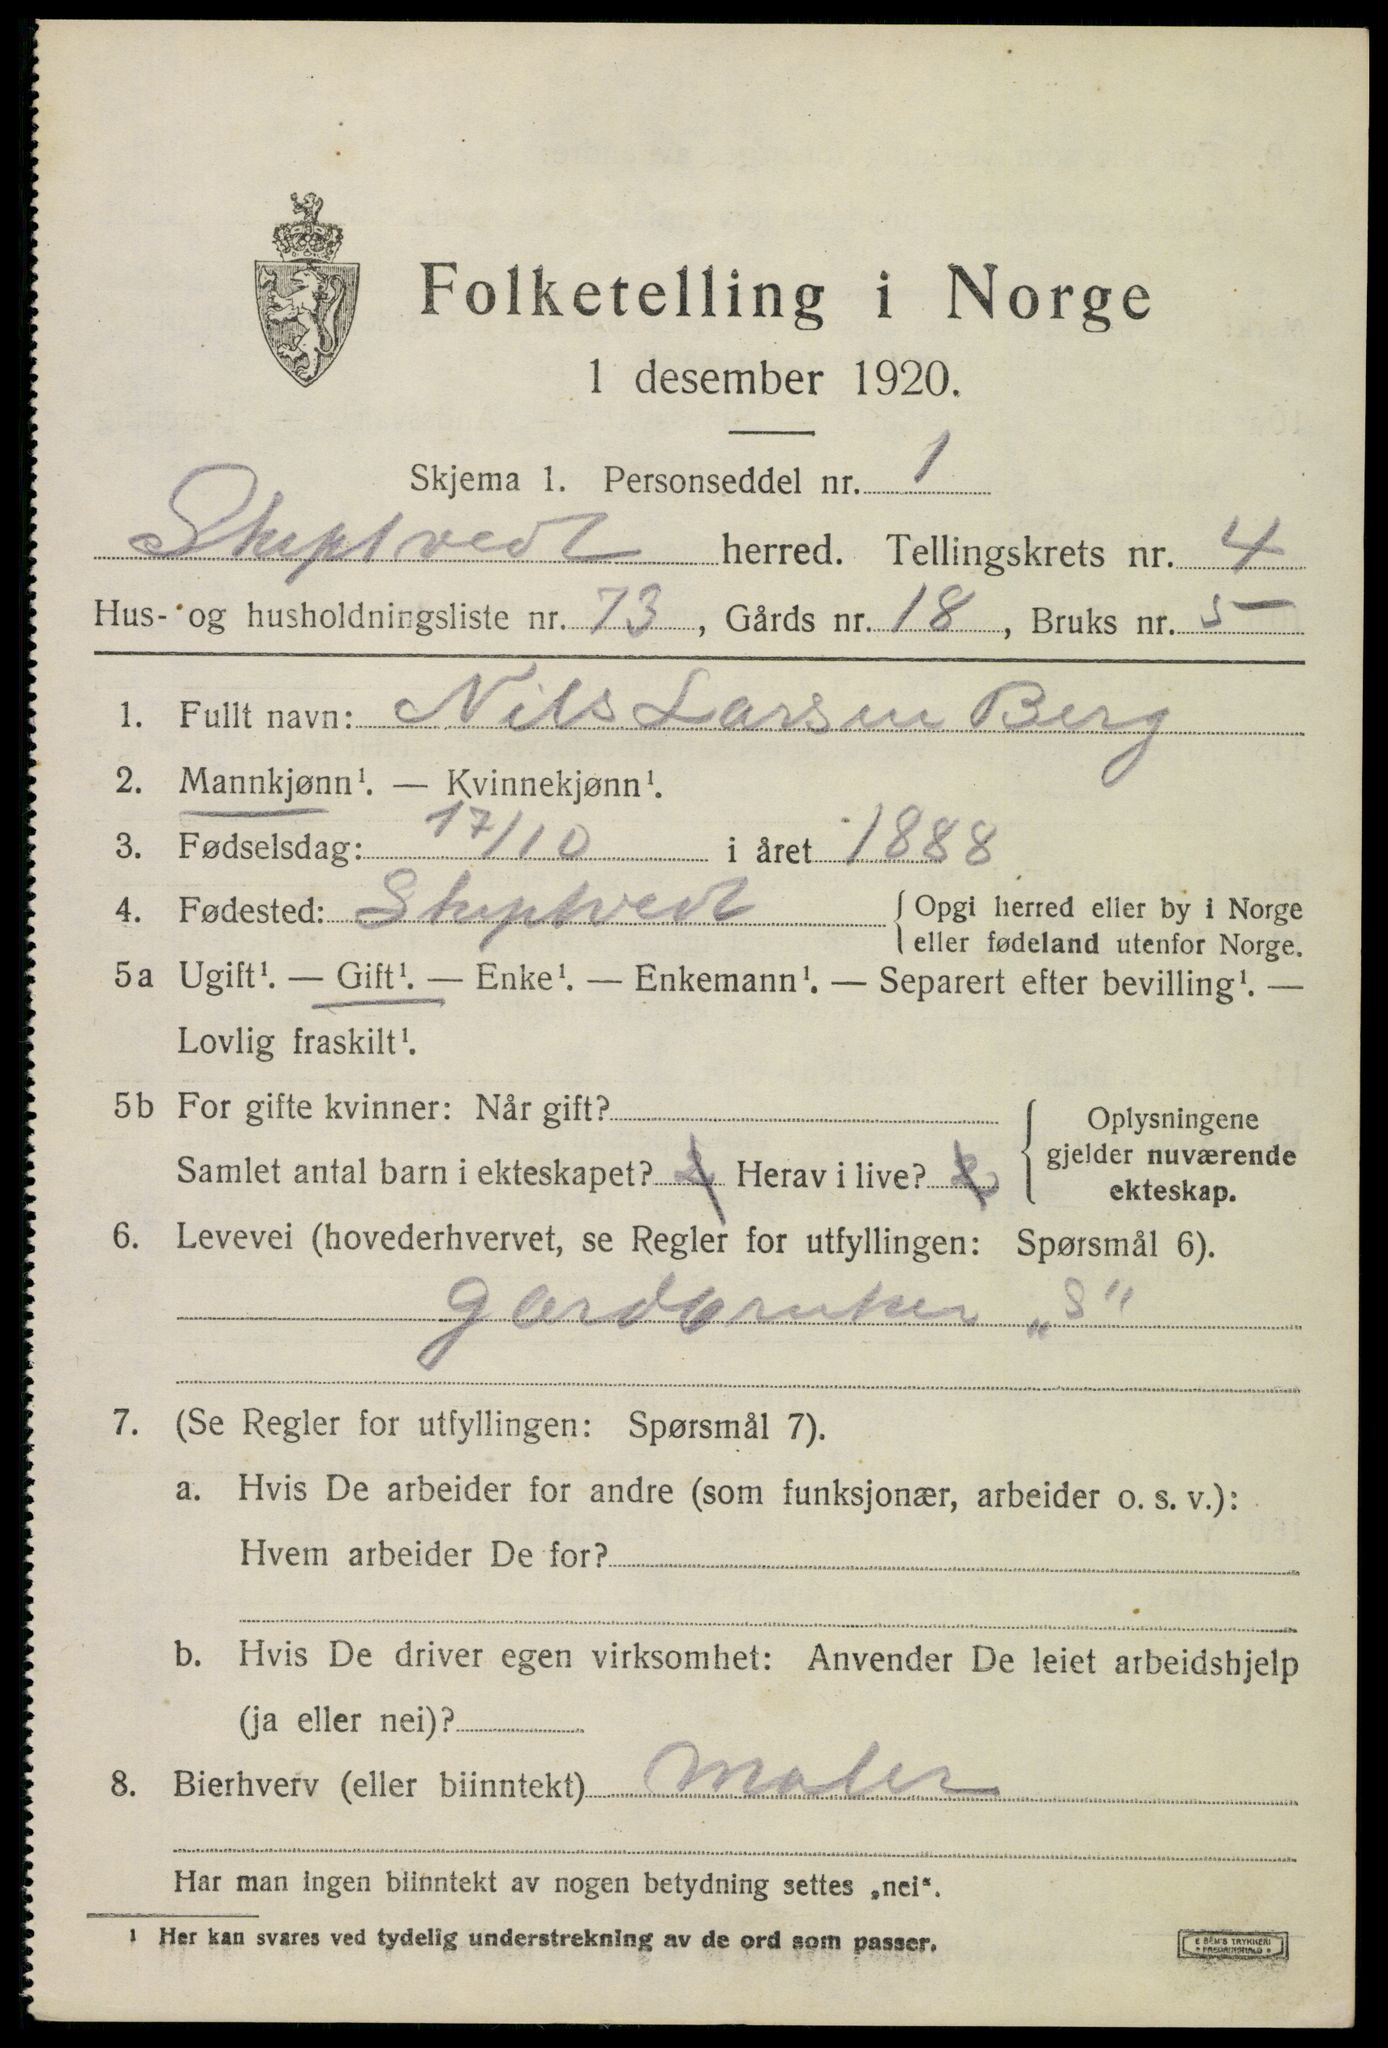 Folketelling i Norge
1 desember 1920.
Skjema 1. Personseddel nr. 1
Skiptvedt herred. Tellingskrets nr. 4
Hus- og husholdningsliste nr. 73, Gårds nr. 18, Bruks nr. 5
1. Fullt navn: Nils Larsen Berg
2. Mannkjønn¹. — Kvinnekjønn¹.
3. Fødselsdag: 17/10 i året 1888
4. Fødested: Skiptvedt { Opgi herred eller by i Norge
eller fødeland utenfor Norge.
5a Ugift¹. — Gift¹. — Enke¹. — Enkemann¹. — Separert efter bevilling¹. —
Lovlig fraskilt¹.
5b For gifte kvinner: Når gift? { Oplysningene
gjelder nuværende
ekteskap.
Samlet antal barn i ekteskapet? 2 Herav i live? 2
6. Levevei (hovederhvervet, se Regler for utfyllingen: Spørsmål 6).
Gardbruker „S"
7. (Se Regler for utfyllingen: Spørsmål 7).
a. Hvis De arbeider for andre (som funksjonær, arbeider o. s. v.):
Hvem arbeider De for?
b. Hvis De driver egen virksomhet: Anvender De leiet arbeidshjelp
(ja eller nei)?
8. Bierhverv (eller biinntekt) Maler
Har man ingen biinntekt av nogen betydning settes „nei".
1 Her kan svares ved tydelig understrekning av de ord som passer.
E SEM'S TRYKKERI
• FREDRIKSHALD •